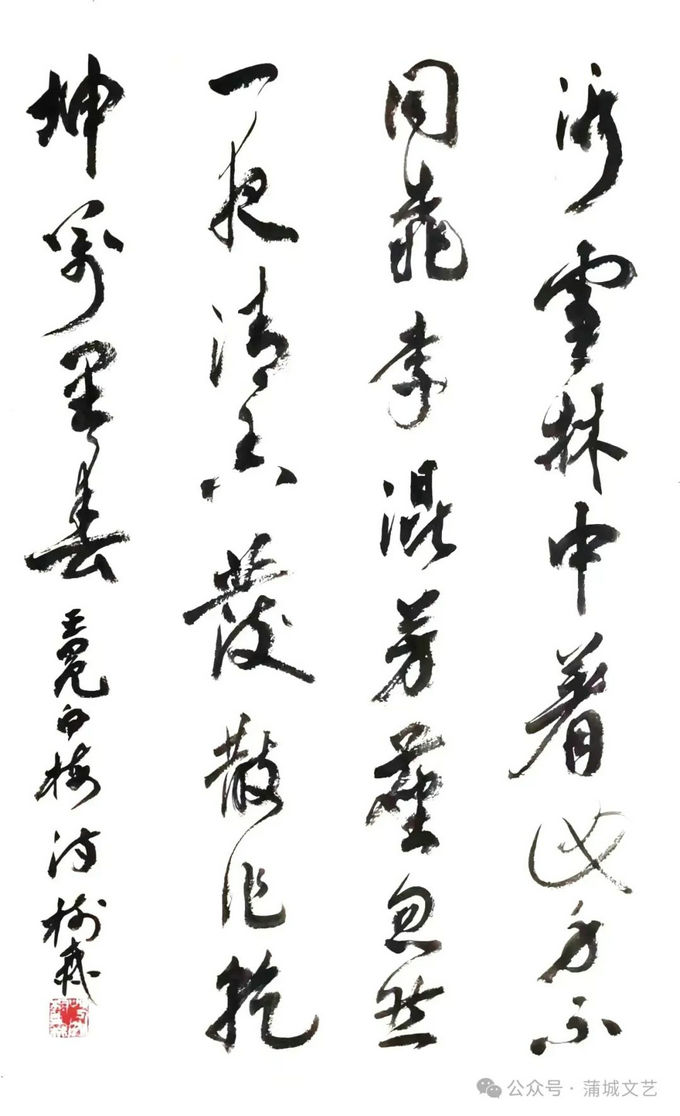 冰雪林中着此身不
同桃李混芳塵忽然
一夜清香發散作乾
坤萬里春
王冕白梅诗
公众号·蒲城文艺